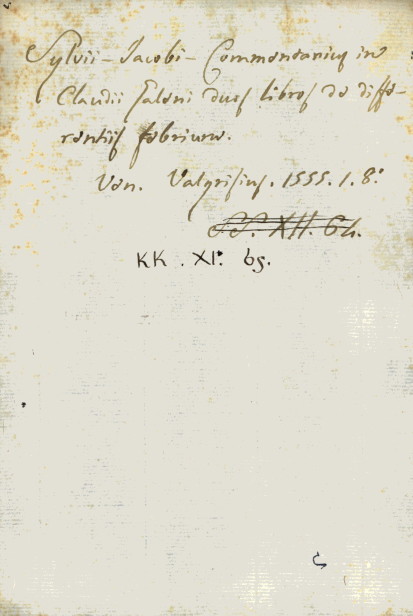 Sylvii - Jacobi - Commentarius in
Claudii Galeni duos libros de diffe-
rentiis febrium.
Ven. Valgrisius. 1555. 1. 8º
SS. XII. 64.
KK. XI. 65.